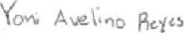 Yomi Avelino Reyes